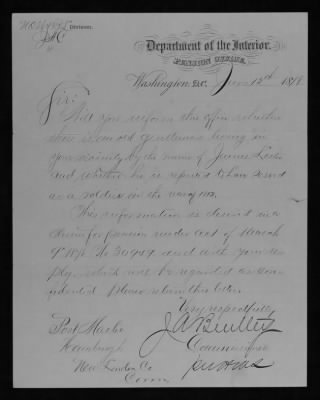 Division.
Department of the Interior,
PENSION OFFICE,
Washington, D.C., 12th 1878
Sir:
Will you inform this office whether
there is an old gentleman living in
your vicinity by the name of James
and whether he is reputed to have served
as a soldier in the war of 1812.
This information is desired in a
claim for pension under act of March
9" 1878, No 30949 and with your re-
ply, which will be regarded as con-
fidential please return this letter.
Very respectfully
J A Bentley
Commissioner
Post Master
New London Co
Conn